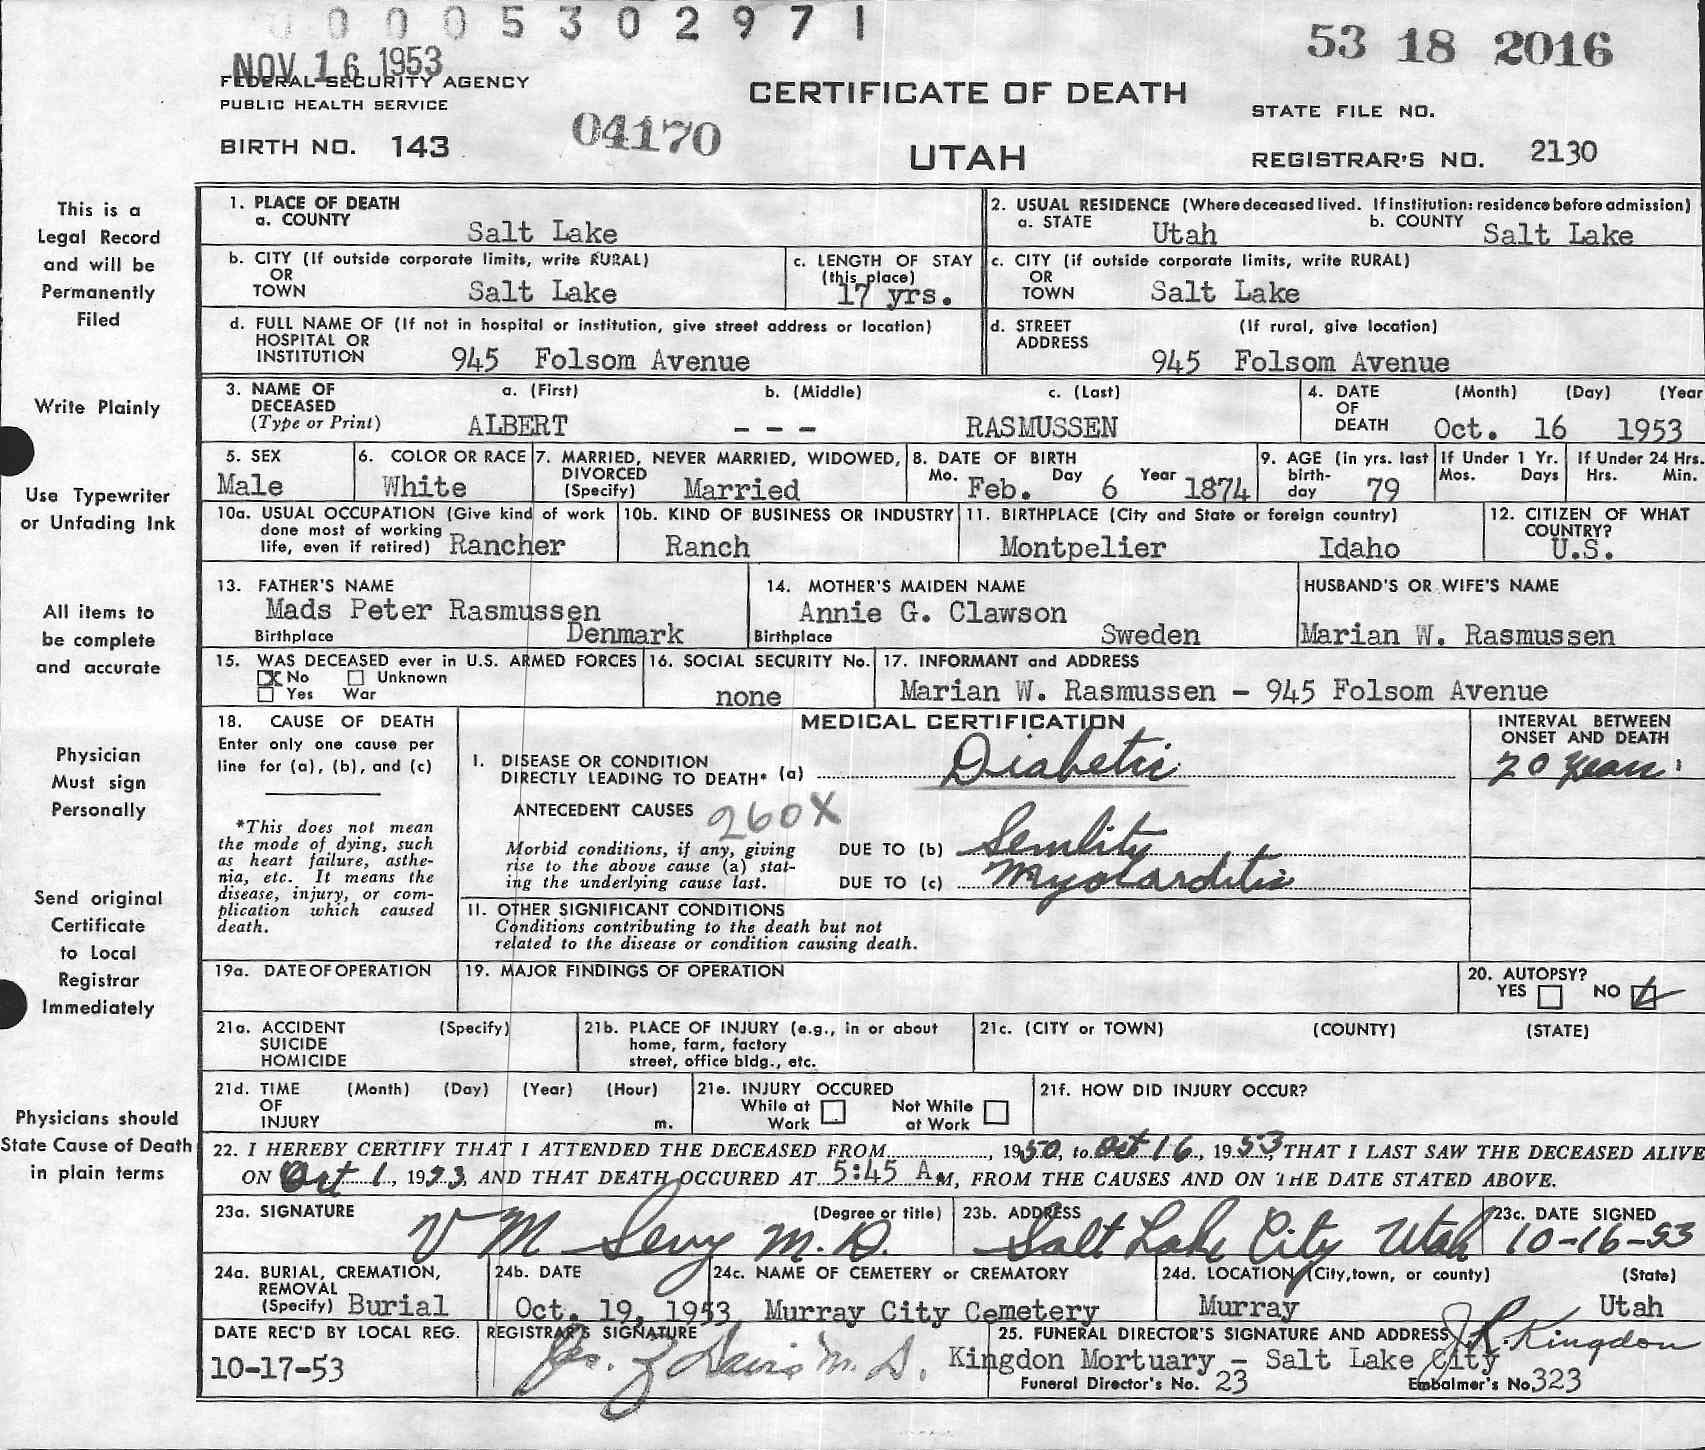 0 0 0 5 3 0 2 9 7 1
NOV 16 1953
53 18 2016
FEDERAL SECURITY AGENCY
PUBLIC HEALTH SERVICE
CERTIFICATE OF DEATH
STATE FILE NO.
BIRTH NO. 143
04170
UTAH
REGISTRAR'S NO. 2130
This is a
Legal Record
and will be
Permanently
Filed
Write Plainly
Use Typewriter
or Unfading Ink
All items to
be complete
and accurate
Physician
Must sign
Personally
Send original
Certificate
to Local
Registrar
Immediately
Physicians should
State Cause of Death
in plain terms
1. PLACE OF DEATH
a. COUNTY
Salt Lake
2. USUAL RESIDENCE (Where deceased lived. If institution: residence before admission)
a. STATE Utah b. COUNTY Salt Lake
b. CITY (If outside corporate limits, write RURAL)
OR
TOWN Salt Lake
c. LENGTH OF STAY
(this place)
17 yrs.
c. CITY (if outside corporate limits, write RURAL)
OR
TOWN Salt Lake
d. FULL NAME OF (If not in hospital or institution, give street address or location)
HOSPITAL OR
INSTITUTION 945 Folsom Avenue
d. STREET (If rural, give location)
ADDRESS
945 Folsom Avenue
3. NAME OF a. (First) b. (Middle) c. (Last)
DECEASED
(Type or Print) ALBERT - - - RASMUSSEN
4. DATE (Month) (Day) (Year
OF
DEATH Oct. 16 1953
5. SEX
Male
6. COLOR OR RACE
White
7. MARRIED, NEVER MARRIED, WIDOWED,
DIVORCED
(Specify) Married
8. DATE OF BIRTH
Mo. Feb. Day 6 Year 1874
9. AGE (in yrs. last
birth-
day 79
If Under 1 Yr.
Mos. Days
If Under 24 Hrs.
Hrs. Min.
10a. USUAL OCCUPATION (Give kind of work
done most of working
life, even if retired) Rancher
10b. KIND OF BUSINESS OR INDUSTRY
Ranch
11. BIRTHPLACE (City and State or foreign country)
Montpelier Idaho
12. CITIZEN OF WHAT
COUNTRY?
U.S.
13. FATHER'S NAME
Mads Peter Rasmussen
Birthplace Denmark
14. MOTHER'S MAIDEN NAME
Annie G. Clawson
Birthplace Sweden
HUSBAND'S OR WIFE'S NAME
Marian W. Rasmussen
15. WAS DECEASED ever in U.S. ARMED FORCES
X No Unknown
Yes War
16. SOCIAL SECURITY No.
none
17. INFORMANT and ADDRESS
Marian W. Rasmussen - 945 Folsom Avenue
18. CAUSE OF DEATH
Enter only one cause per
line for (a), (b), and (c)
*This does not mean
the mode of dying, such
as heart failure, asthe-
nia, etc. It means the
disease, injury, or com-
plication which caused
death.
MEDICAL CERTIFICATION
I. DISEASE OR CONDITION
DIRECTLY LEADING TO DEATH* (a) Diabetic
ANTECEDENT CAUSES 260X
Morbid conditions, if any, giving
rise to the above cause (a) stat-
ing the underlying cause last.
DUE TO (b) Senility
DUE TO (c) Myocarditis
II. OTHER SIGNIFICANT CONDITIONS
Conditions contributing to the death but not
related to the disease or condition causing death.
INTERVAL BETWEEN
ONSET AND DEATH
20 years
19a. DATE OF OPERATION
19. MAJOR FINDINGS OF OPERATION
20. AUTOPSY?
YES NO
21a. ACCIDENT (Specify)
SUICIDE
HOMICIDE
21b. PLACE OF INJURY (e.g., in or about
home, farm, factory
street, office bldg., etc.
21c. (CITY or TOWN) (COUNTY) (STATE)
21d. TIME (Month) (Day) (Year) (Hour)
OF
INJURY m.
21e. INJURY OCCURED
While at Work Not While at Work
21f. HOW DID INJURY OCCUR?
22. I HEREBY CERTIFY THAT I ATTENDED THE DECEASED FROM, 1950, to Oct 16, 1953, THAT I LAST SAW THE DECEASED ALIVE
ON Oct 1, 1953, AND THAT DEATH OCCURED AT 5:45 A.M, FROM THE CAUSES AND ON THE DATE STATED ABOVE.
23a. SIGNATURE (Degree or title)
V M Sevy M.D.
23b. ADDRESS
Salt Lake City Utah
23c. DATE SIGNED
10-16-53
24a. BURIAL, CREMATION,
REMOVAL
(Specify) Burial
24b. DATE
Oct. 19, 1953
24c. NAME OF CEMETERY or CREMATORY
Murray City Cemetery
24d. LOCATION (City, town, or county) (State)
Murray Utah
DATE REC'D BY LOCAL REG.
10-17-53
REGISTRAR'S SIGNATURE
Davis M.D.
25. FUNERAL DIRECTOR'S SIGNATURE AND ADDRESS J R Kingdon
Kingdon Mortuary - Salt Lake City
Funeral Director's No. 23 Embalmer's No 323